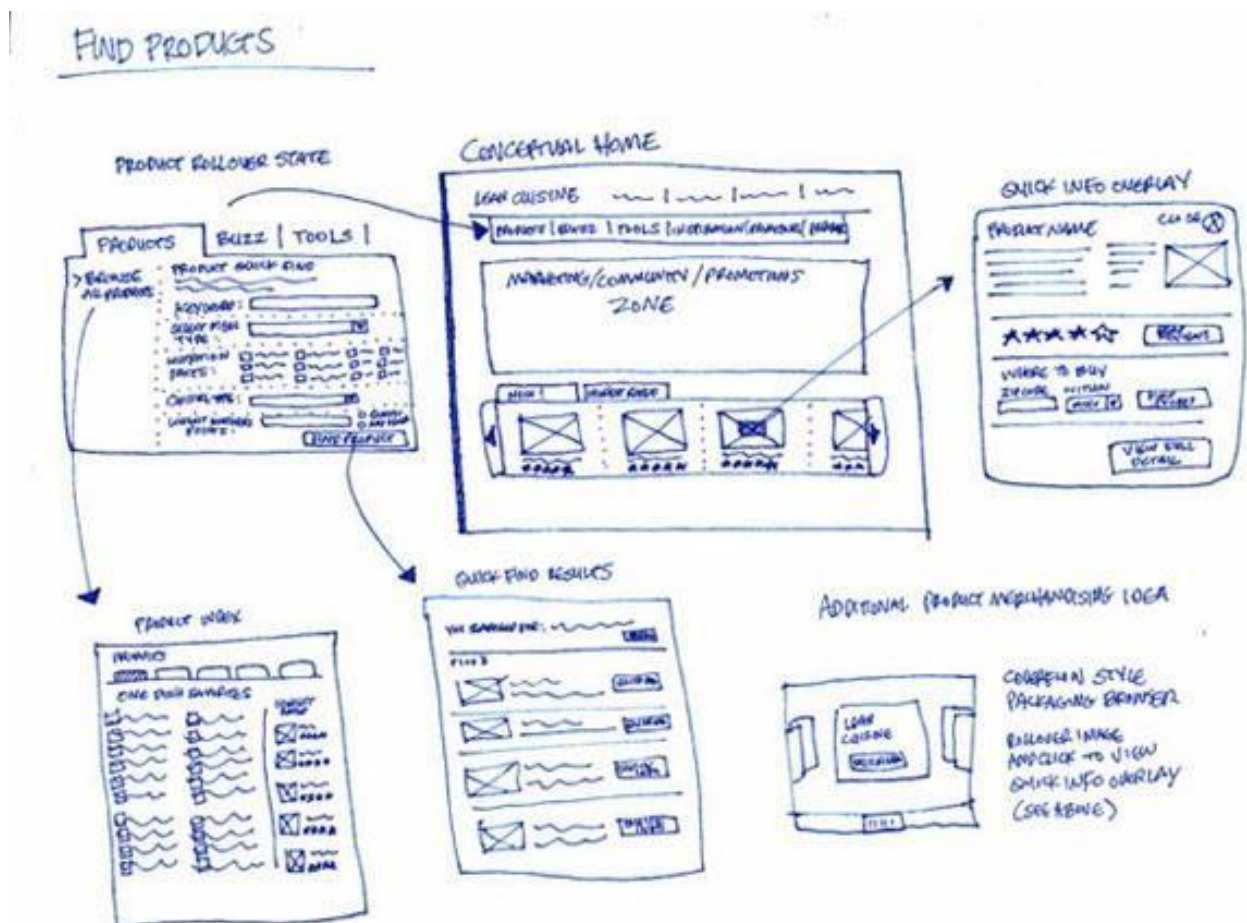 FIND PRODUCTS
PRODUCT ROLLOVER STATE
PRODUCTS
BUZZ | TOOLS |
> BROWSE
ALL PRODUCTS
PRODUCT QUICK FIND
KEYWORD:
SELECT MEAL
TYPE:
NUTRITION
FACTS:
CUISINE TYPE:
WEIGHT WATCHERS
POINTS:
FIND PRODUCT
CONCEPTUAL HOME
LEAN CUISINE
PRODUCTS | BUZZ | TOOLS |
MARKETING/COMMUNITY/PROMOTIONS
ZONE
NEW
HIGHEST RATED
QUICK INFO OVERLAY
PRODUCT NAME
CLOSE X
WHERE TO BUY
ZIP CODE WITHIN
VIEW FULL
DETAIL
PRODUCT INDEX
PRODUCTS
ONE DISH FAVORITES
HIGHEST
RATED
QUICK FIND RESULTS
YOU SEARCHED FOR:
ADDITIONAL PRODUCT MERCHANDISING IDEA
LEAN
CUISINE
COVERFLOW STYLE
PACKAGING BROWSER
ROLLOVER IMAGE
AND CLICK TO VIEW
QUICK INFO OVERLAY
(SEE ABOVE)